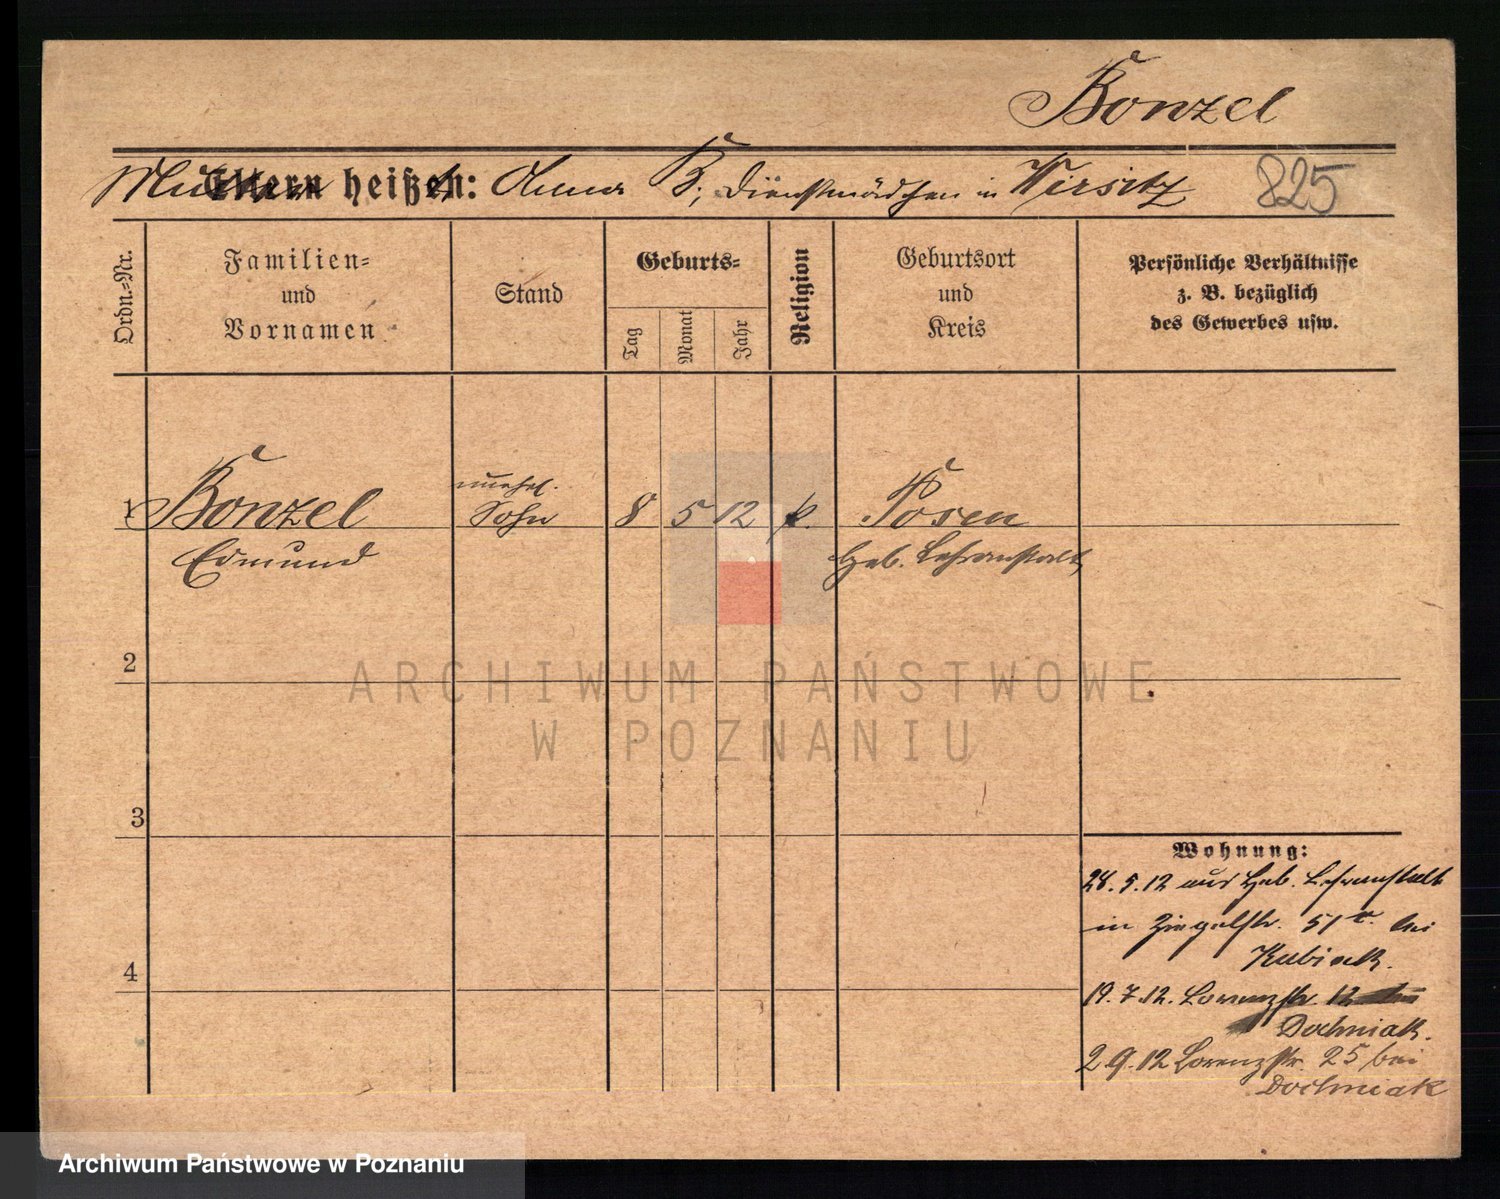 Bonzel
Mutter heißt: Anna B., Dienstmädchen in Wirsitz 825
Eltern heißen:
Ordn.-Nr.
Familien-
und
Vornamen
Stand
Geburts-
Tag
Monat
Jahr
Religion
Geburtsort
und
Kreis
Persönliche Verhältnisse
z. B. bezüglich
des Gewerbes usw.
1 Bonzel unehel. Sohn 8 5 12 k. Posen
Edmund Heb. Lehranstalt
2
3
4
Wohnung:
28.5.12 aus Heb. Lehranstalt
in Ziegelstr. bei
Kubiak.
19.7.12. Lorenzstr. 12 bei
Dochniak.
2 9.12 Lorenzstr. 25 bei
Dochniak
ARCHIWUM PAŃSTWOWE
W POZNANIU
Archiwum Państwowe w Poznaniu